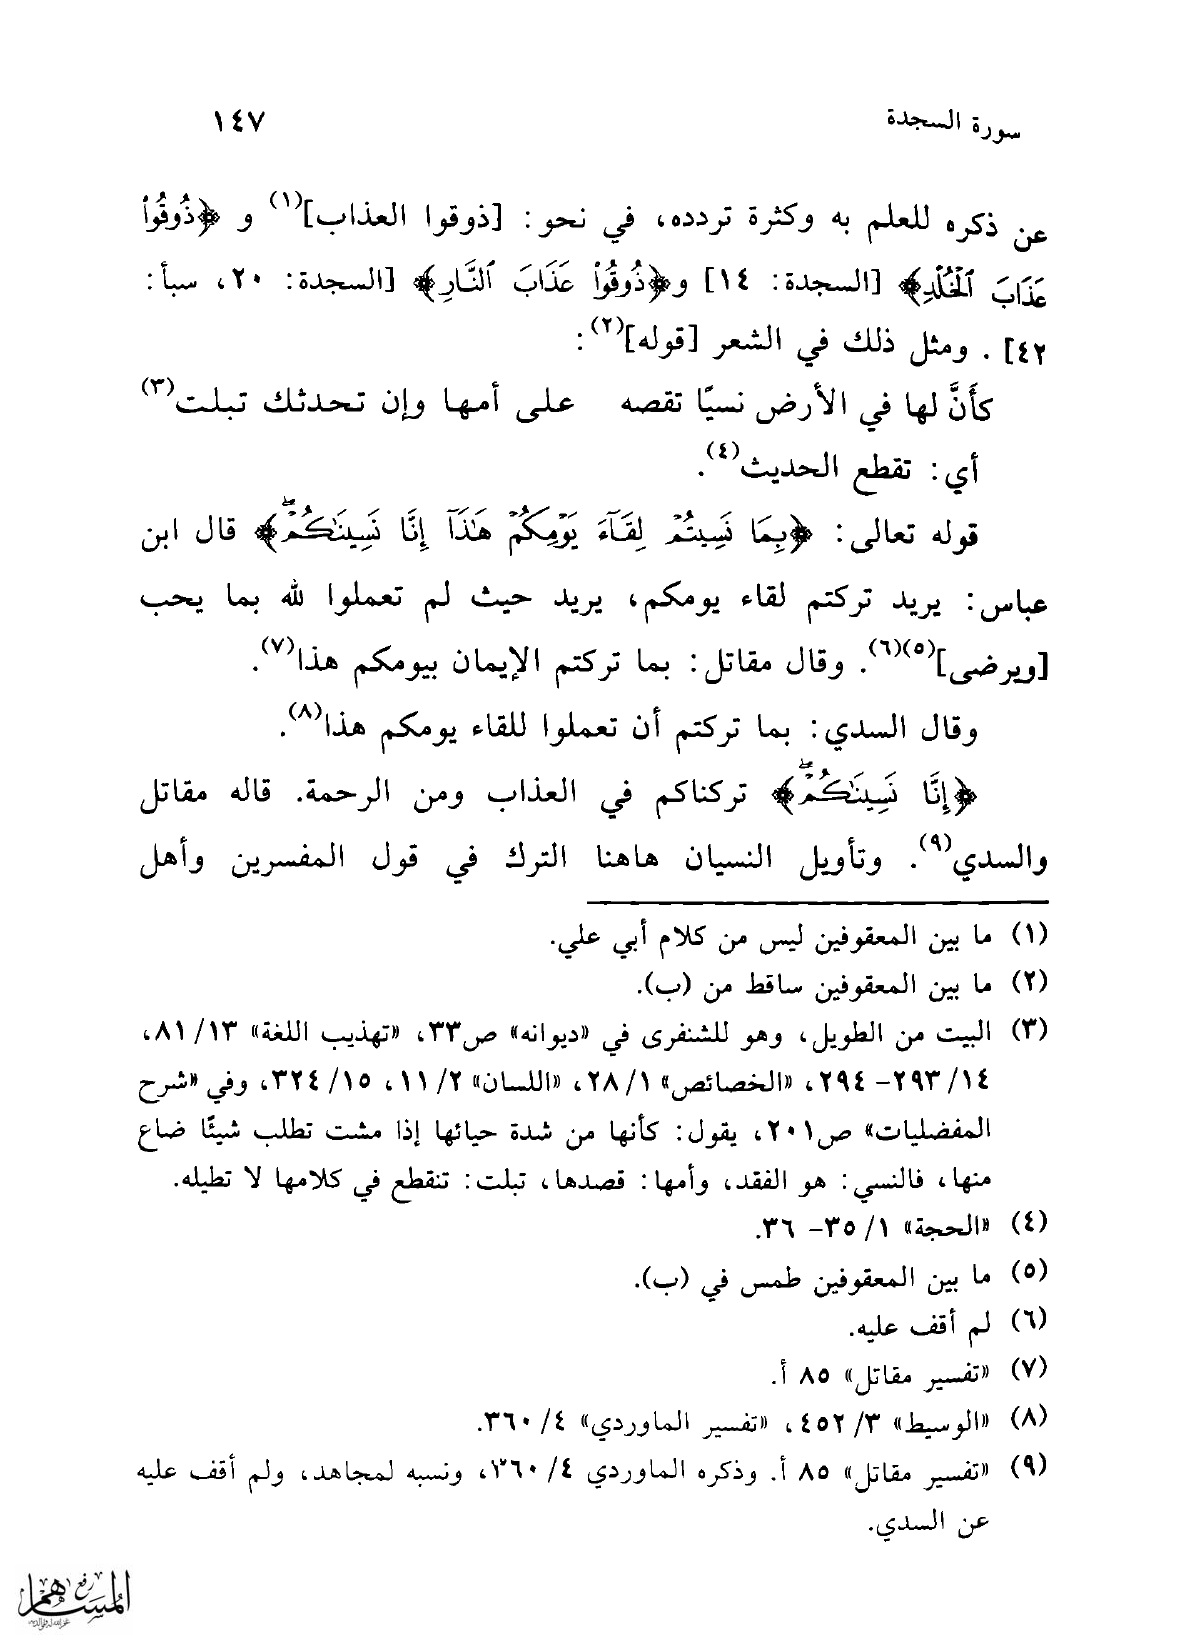 سورة السجدة ١٤٧
عن ذكره للعلم به وكثرة تردده، في نحو: [ذوقوا العذاب](١) و ﴿ذُوقُوا۟
عَذَابَ ٱلْخُلْدِ﴾ [السجدة: ١٤] و﴿ذُوقُوا۟ عَذَابَ ٱلنَّارِ﴾ [السجدة: ٢٠، سبأ:
٤٢] . ومثل ذلك في الشعر [قوله](٢):
كأَنَّ لها في الأرض نسيًا تقصه على أمها وإن تحدثك تبلت(٣)
أي: تقطع الحديث(٤).
قوله تعالى: ﴿بِمَا نَسِيتُمْ لِقَآءَ يَوْمِكُمْ هَٰذَآ إِنَّا نَسِينَٰكُمْ ۖ﴾ قال ابن
عباس: يريد تركتم لقاء يومكم، يريد حيث لم تعملوا لله بما يحب
[ويرضى](٥)(٦). وقال مقاتل: بما تركتم الإيمان بيومكم هذا(٧).
وقال السدي: بما تركتم أن تعملوا للقاء يومكم هذا(٨).
﴿إِنَّا نَسِينَٰكُمْ ۖ﴾ تركناكم في العذاب ومن الرحمة. قاله مقاتل
والسدي(٩). وتأويل النسيان هاهنا الترك في قول المفسرين وأهل
(١) ما بين المعقوفين ليس من كلام أبي علي.
(٢) ما بين المعقوفين ساقط من (ب).
(٣) البيت من الطويل، وهو للشنفرى في «ديوانه» ص٣٣، «تهذيب اللغة» ١٣/ ٨١،
١٤/ ٢٩٣- ٢٩٤، «الخصائص» ١/ ٢٨، «اللسان» ٢/ ١١، ١٥/ ٣٢٤، وفي «شرح
المفضليات» ص٢٠١، يقول: كأنها من شدة حيائها إذا مشت تطلب شيئًا ضاع
منها، فالنسي: هو الفقد، وأمها: قصدها، تبلت: تنقطع في كلامها لا تطيله.
(٤) «الحجة» ١/ ٣٥- ٣٦.
(٥) ما بين المعقوفين طمس في (ب).
(٦) لم أقف عليه.
(٧) «تفسير مقاتل» ٨٥ أ.
(٨) «الوسيط» ٣/ ٤٥٢، «تفسير الماوردي» ٤/ ٣٦٠.
(٩) «تفسير مقاتل» ٨٥ أ. وذكره الماوردي ٤/ ٣٦٠، ونسبه لمجاهد، ولم أقف عليه
عن السدي.